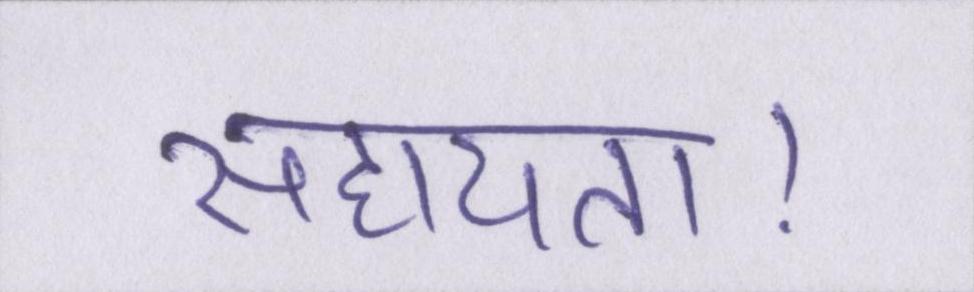 सहायता!